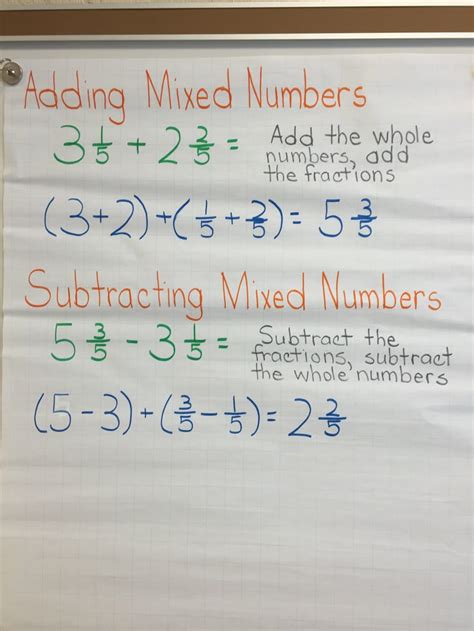 Adding Mixed Numbers
3 1/5 + 2 2/5 = Add the whole
numbers, add
the fractions
(3+2)+(1/5 + 2/5)= 5 3/5
Subtracting Mixed Numbers
5 3/5 - 3 1/5 = Subtract the
fractions, subtract
the whole numbers
(5-3)+(3/5 - 1/5)= 2 2/5